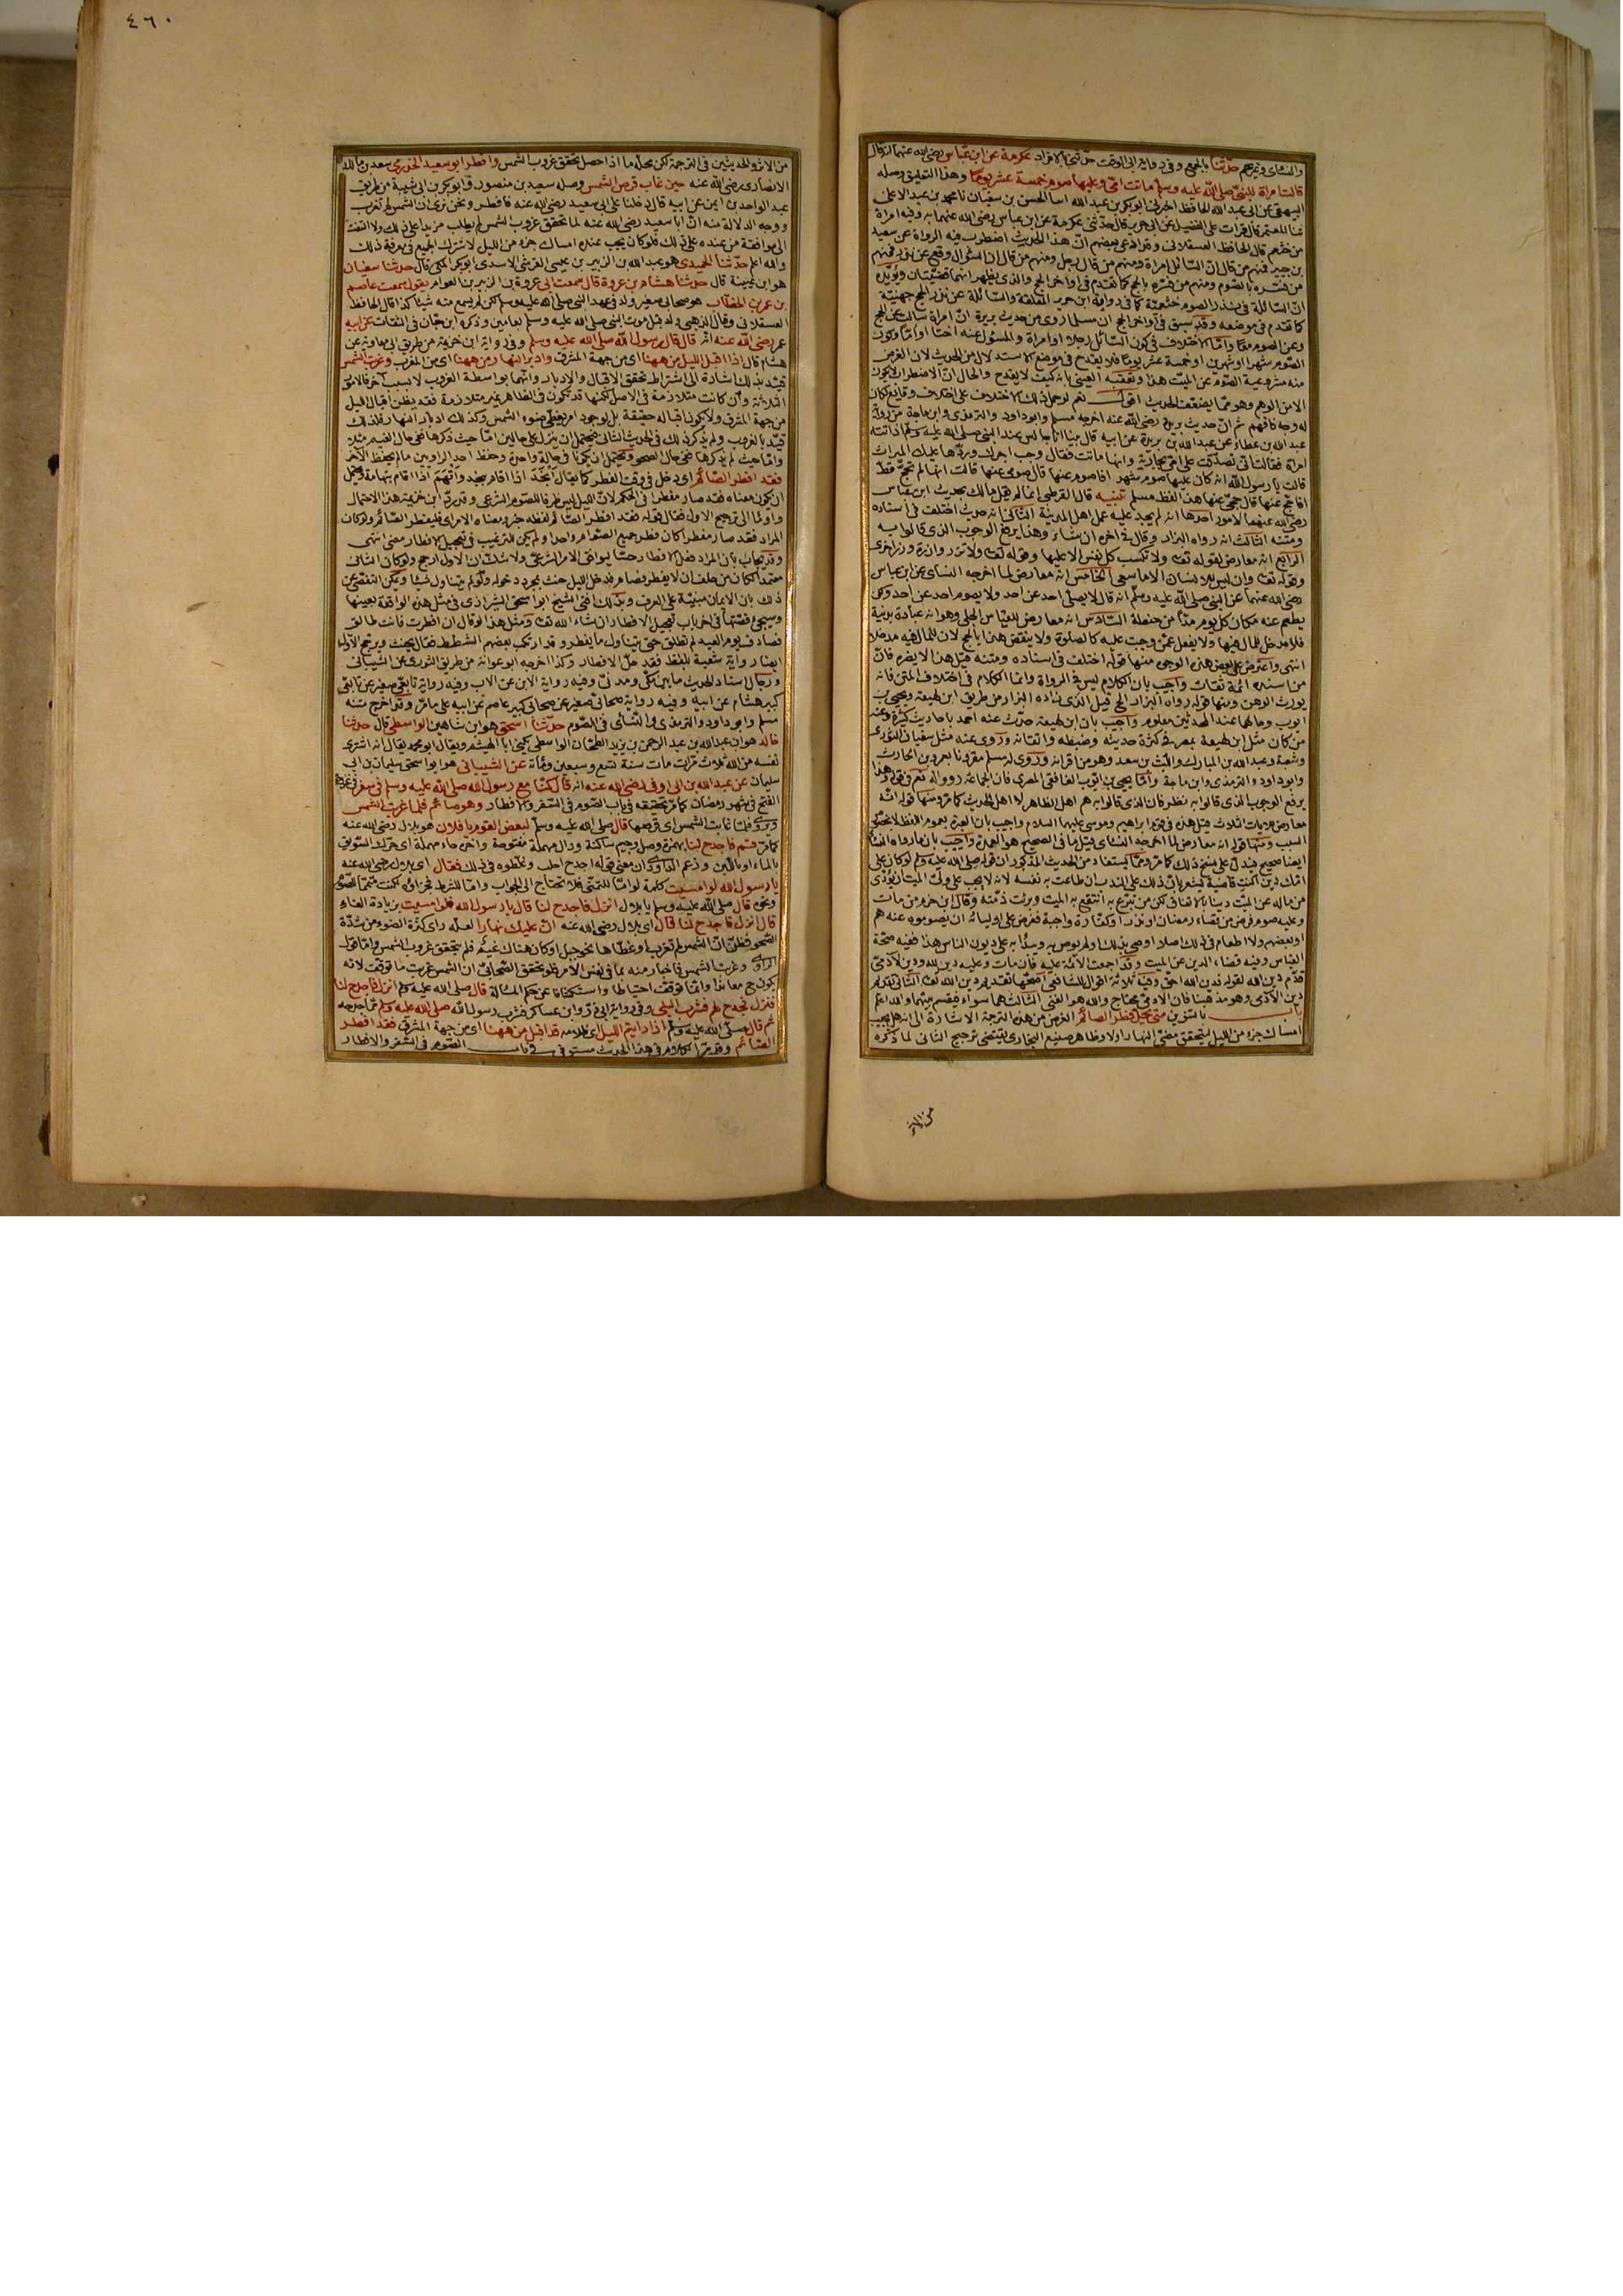 والنسائى وغيرهم حدثنا بالجمع وفى رواية ابى الوقت حدثنى بالافراد عكرمة عن ابن عباس رضى الله عنهما انه قال
قالت امراة للنبى صلى الله عليه وسلم ماتت امى وعليها صوم خمسة عشر يوما وهذا التعليق وصله
البيهقى عن ابى عبد الله الحافظ اخبرنى ابو بكر بن عبد الله انبا الحسن بن سفيان نا محمد بن عبد الاعلى
ثنا المعتمر قال قرات على الفضيل عن ابى حريز قال حدثنى عكرمة عن ابن عباس رضى الله عنهما به وفيه امراة
من خثعم قال الحافظ العسقلانى وقد ادعى بعضهم ان هذا الحديث اضطرب فيه الرواة عن سعيد
بن جبير فمنهم من قال ان السائل امراة ومنهم من قال رجل ومنهم من قال ان السؤال وقع عن نذر فمنهم
من فسره بالصوم ومنهم من فسره بالحج كما تقدم فى اواخر الحج والذى يظهر انهما قضيتان ويؤيده
ان السائلة فى نذر الصوم خثعمية كما فى رواية ابى حريز المعلقة والسائلة عن نذر الحج جهنية
كما تقدم فى موضعه وقد سبق فى اواخر الحج ان مسلما روى من حديث بريدة ان امراة سالت عن الحج
وعن الصوم معا واما الاختلاف فى كون السائل رجلا او امراة والمسئول عنه اختا او اما وكون
الصوم شهرا او شهرين او خمسة عشر يوما فلا يقدح فى موضع الاستدلال من الحديث لان الغرض
منه مشروعية الصوم عن الميت هذا وتعقبه العينى بانه كيف لا يقدح والحال ان الاضطراب لا يكون
الا من الوهم وهو مما يضعف الحديث اقول نعم لو حمل ذلك الاختلاف على اختلاف وقايع لكان
له وجه فافهم ثم ان حديث بريدة رضى الله عنه اخرجه مسلم وابو داود والترمذى وابن ماجة من رواية
عبد الله بن عطاء عن عبد الله بن بريدة عن ابيه قال بينا انا جالس عند النبى صلى الله عليه وسلم اذ اتته
امراة فقالت انى تصدقت على امى بجارية وانها ماتت فقال وجب اجرك وردها عليك الميراث
قالت يا رسول الله انه كان عليها صوم شهر افاصوم عنها قال صومى عنها قالت انها لم تحج قط
افاحج عنها قال حجى عنها هذا لفظ مسلم تنبيه قال القرطبى انما لم يقل مالك بحديث ابن عباس
رضى الله عنهما لامور احدها انه لم يجد عليه عمل اهل المدينة الثانى انه حديث اختلف فى اسناده
ومتنه الثالث انه رواه البزار وقال فى اخره ان شاء وهذا يرفع الوجوب الذى قالوا به
الرابع انه معارض لقوله تعالى ولا تكسب كل نفس الا عليها وقوله تعالى ولا تزر وازرة وزر اخرى
وقوله تعالى وان ليس للانسان الا ما سعى الخامس انه معارض لما اخرجه النسائى عن ابن عباس
رضى الله عنهما عن النبى صلى الله عليه وسلم انه قال لا يصلى احد عن احد ولا يصوم احد عن احد ولكن
يطعم عنه مكان كل يوم مدا من حنطة السادس انه معارض للقياس الجلى وهو انه عبادة بدنية
فلا مدخل للمال فيها ولا يفعل عمن وجبت عليه كالصلوة ولا ينقض هذا بالحج لان للمال فيه مدخلا
انتهى واعترض على بعض هذه الوجوه منها قوله اختلف فى اسناده ومتنه قيل هذا لا يضره فان
من اسنده ائمة ثقات واجيب بان الكلام ليس فى الرواة وانما الكلام فى اختلاف المتن فانه
يورث الوهن ومنها قوله رواه البزار الخ قيل الذى زاده البزار من طريق ابن لهيعة ويحيى بن
ايوب وحالهما عند المحدثين معلوم واجيب بان ابن لهيعة حدث عنه احمد باحاديث كثيرة وعنه
من كان مثل ابن لهيعة بمصر فى كثرة حديثه وضبطه واتقانه وروى عنه مثل سفيان الثورى
وشعبة وعبد الله بن المبارك والليث بن سعد وهو من اقرانه وروى له مسلم مقرونا بعمرو بن الحارث
وابو داود والترمذى وابن ماجة واما يحيى بن ايوب الغافقى المصرى فان الجماعة رووا له
يرفع الوجوب الذى قالوا به نظر فان الذى قالوا به هم اهل الظاهر لا اهل الحديث كما مر ومنها قوله انه
السبب ومنها قوله انه معارض لما اخرجه النسائى قيل ما فى الصحيح هو العمدة واجيب بان ما رواه النسائى
من ماله عن الميت وبرئت ذمته وقال ابن حزم من مات
وعليه صوم فرض من قضاء رمضان او نذر او كفارة واجبة ففرض على اوليائه ان يصوموه عنه هم
او بعضهم ولا اطعام فى ذلك اصلا اوصى بذلك او لم يوص به ويبدأ به على ديون الناس هذا ففيه صحة
القياس وفيه قضاء الدين عن الميت وقد اجمعت الائمة عليه فان مات وعليه دين لله ودين لآدمى
قدم دين الله لقوله فدين الله احق وفيه ثلاثة اقوال للشافعى اصحها تقديم دين الله تعالى الثانى تقديم
دين الآدمى وهو مذهبنا فان الآدمى محتاج والله هو الغنى الثالث هما سواء فيقسم بينهما والله اعلم
باب بالتنوين متى يحل فطر الصائم الغرض من هذه الترجمة الاشارة الى انه هل يجب
امساك جزء من الليل ليتحقق مضى النهار اولا وظاهر صنيع البخارى يقتضى ترجيح الثانى لما ذكره
من الاثر
٤٦٠
من الاثر والحديثين فى الترجمة لكن محله ما اذا حصل تحقق غروب الشمس وافطر ابو سعيد الخدرى سعد بن مالك
الانصارى رضى الله عنه حين غاب قرص الشمس وصله سعيد بن منصور وابو بكر بن ابى شيبة من طريق
عبد الواحد بن ايمن عن ابيه قال دخلنا على ابى سعيد رضى الله عنه فافطر ونحن نرى ان الشمس لم تغرب
ووجه الدلالة منه ان ابا سعيد رضى الله عنه لما تحقق غروب الشمس لم يطلب مزيدا على ذلك ولا التفت
الى موافقة من عنده على ذلك فلو كان يجب عنده امساك جزء من الليل لاشترك الجميع فى معرفة ذلك
والله اعلم حدثنا الحميدى هو عبد الله بن الزبير بن عيسى القرشى الاسدى ابو بكر المكى قال حدثنا سفيان
هو ابن عيينة قال حدثنا هشام بن عروة قال سمعت ابى عروة بن الزبير بن العوام يقول سمعت عاصم
بن عمر بن الخطاب هو صحابى صغير ولد فى عهد النبى صلى الله عليه وسلم لكن لم يسمع منه شيئا كذا قال الحافظ
العسقلانى وقال الذهبى ولد قبل موت النبى صلى الله عليه وسلم بعامين وذكره ابن حبان فى الثقات عن ابيه
عمر رضى الله عنه انه قال قال رسول الله صلى الله عليه وسلم وفى رواية ابن خزيمة من طريق ابى معاوية عن
هشام قال لى اذا اقبل الليل من ههنا اى من جهة المشرق وادبر النهار من ههنا اى من المغرب وغربت الشمس
قيد بذلك اشارة الى اشتراط تحقق الاقبال والادبار وانهما بواسطة الغروب لا بسبب آخر فالامور
الثلاثة وان كانت متلازمة فى الاصل لكنها قد تكون فى الظاهر غير متلازمة فقد يظن اقبال الليل
من جهة المشرق ولا يكون اقباله حقيقة بل لوجود امر يغطى ضوء الشمس وكذلك ادبار النهار فلذلك
قيد بالغروب ولم يذكر ذلك فى الحديث الثانى فيحتمل ان ينزل على حالين اما حيث ذكرها ففى حال الغيم مثلا
واما حيث لم يذكرها ففى حال الصحو ويحتمل ان يكونا فى حالة واحدة وحفظ احد الراويين ما لم يحفظ الآخر
فقد افطر الصائم اى دخل فى وقت الفطر كما يقال انجد اذا اقام بنجد واتهم اذا اقام بتهامة ويحتمل
ان يكون معناه فقد صار مفطرا فى الحكم لان الليل ليس ظرفا للصوم الشرعى وقد رد ابن خزيمة هذا الاحتمال
واومأ الى ترجيح الاول فقال قوله فقد افطر الصائم لفظه خبر ومعناه الامر اى فليفطر الصائم ولو كان
المراد فقد صار مفطرا كان فطر جميع الصوام واحدا ولم يكن للترغيب فى تعجيل الافطار معنى انتهى
وقد يجاب بان المراد فعل الافطار حسا ليوافق الامر الشرعى ولا شك ان الاول ارجح ولو كان الثانى
معتمدا لكان من حلف ان لا يفطر فصام فدخل الليل حنث بمجرد دخوله ولو لم يتناول شيئا ويمكن التفصى عن
ذلك بان الايمان مبنية على العرف وبذلك افتى الشيخ ابو اسحق الشيرازى فى مثل هذه الواقعة بعينها
فصادف يوم العيد لم تطلق حتى يتناول ما يفطر به وقد ارتكب بعضهم الشطط فقال يحنث ويرجح الاول
ايضا رواية شعبة بلفظ فقد حل الافطار وكذا اخرجه ابو عوانة من طريق الثورى عن الشيبانى
ورجال اسناد الحديث ما بين مكى ومدنى وفيه رواية الابن عن الاب وفيه رواية تابعى صغير عن تابعى
كبير هشام عن ابيه وفيه رواية صحابى صغير عن صحابى كبير عاصم عن ابيه على ما مر وقد اخرج متنه
مسلم وابو داود والترمذى والنسائى فى الصوم حدثنا اسحق هو ابن شاهين الواسطى قال حدثنا
خالد هو ابن عبد الله بن عبد الرحمن بن يزيد الطحان الواسطى يكنى ابا الهيثم ويقال ابو محمد يقال انه اشترى
نفسه من الله ثلاث مرات مات سنة تسع وسبعين ومائة عن الشيبانى هو ابو اسحق سليمان بن ابى
سليمان عن عبد الله بن ابى اوفى رضى الله عنه انه قال كنا مع رسول الله صلى الله عليه وسلم فى سفر فى غزوة
الفتح فى شهر رمضان كما مر تحقيقه فى باب الصوم فى السفر والافطار وهو صائم فلما غربت الشمس
ويروى فلما غابت الشمس اى قرصها قال صلى الله عليه وسلم لبعض القوم يا فلان هو بلال رضى الله عنه
كما مر قم فاجدح لنا بهمزة وصل وجيم ساكنة ودال مهملة مفتوحة واخره حاء مهملة اى حرك السويق
بالماء او باللبن وزعم الداودى ان معنى قوله اجدح احلب وغلطوه فى ذلك فقال اى بلال رضى الله عنه
يا رسول الله لو امسيت كلمة لو اما للتمنى فلا تحتاج الى الجواب واما للشرط فجزاؤه لكنت متما للصوم
ونحوه قال صلى الله عليه وسلم يا بلال انزل فاجدح لنا قال يا رسول الله فلو امسيت بزيادة الفاء
قال انزل فاجدح لنا قال اى بلال رضى الله عنه ان عليك نهارا لعله راى كثرة الضوء من شدة
الصحو فظن ان الشمس لم تغرب او غطاها نحو جبل او كان هناك غيم فلم يتحقق غروب الشمس واما قول
الراوى وغربت الشمس فاخبار منه بما فى نفس الامر فلو تحقق الصحابى ان الشمس غربت ما توقف لانه
يكون ح معاندا وانما توقف احتياطا واستكشافا عن حكم المسألة قال صلى الله عليه وسلم انزل فاجدح لنا
فنزل فجدح لهم فشرب النبى وفى رواية ابى ذر وابن عساكر فشرب رسول الله صلى الله عليه وسلم مما جدحه
ثم قال صلى الله عليه وسلم اذا رايتم الليل اى ظلامه قد اقبل من ههنا اى من جهة المشرق فقد افطر
الصائم وقد مر الكلام فى هذا الحديث مستوفى فى باب الصوم فى السفر والافطار